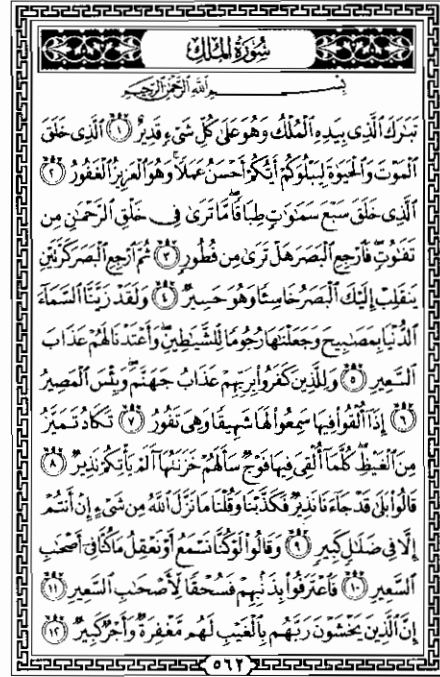 سُورَةُ الْمُلْكِ
بِسْمِ اللَّهِ الرَّحْمَٰنِ الرَّحِيمِ
تَبَارَكَ الَّذِي بِيَدِهِ الْمُلْكُ وَهُوَ عَلَىٰ كُلِّ شَيْءٍ قَدِيرٌ ١ الَّذِي خَلَقَ
الْمَوْتَ وَالْحَيَاةَ لِيَبْلُوَكُمْ أَيُّكُمْ أَحْسَنُ عَمَلًا وَهُوَ الْعَزِيزُ الْغَفُورُ ٢
الَّذِي خَلَقَ سَبْعَ سَمَاوَاتٍ طِبَاقًا مَّا تَرَىٰ فِي خَلْقِ الرَّحْمَٰنِ مِن
تَفَاوُتٍ فَارْجِعِ الْبَصَرَ هَلْ تَرَىٰ مِن فُطُورٍ ٣ ثُمَّ ارْجِعِ الْبَصَرَ كَرَّتَيْنِ
يَنقَلِبْ إِلَيْكَ الْبَصَرُ خَاسِئًا وَهُوَ حَسِيرٌ ٤ وَلَقَدْ زَيَّنَّا السَّمَاءَ
الدُّنْيَا بِمَصَابِيحَ وَجَعَلْنَاهَا رُجُومًا لِّلشَّيَاطِينِ وَأَعْتَدْنَا لَهُمْ عَذَابَ
السَّعِيرِ ٥ وَلِلَّذِينَ كَفَرُوا بِرَبِّهِمْ عَذَابُ جَهَنَّمَ وَبِئْسَ الْمَصِيرُ
٦ إِذَا أُلْقُوا فِيهَا سَمِعُوا لَهَا شَهِيقًا وَهِيَ تَفُورُ ٧ تَكَادُ تَمَيَّزُ
مِنَ الْغَيْظِ كُلَّمَا أُلْقِيَ فِيهَا فَوْجٌ سَأَلَهُمْ خَزَنَتُهَا أَلَمْ يَأْتِكُمْ نَذِيرٌ ٨
قَالُوا بَلَىٰ قَدْ جَاءَنَا نَذِيرٌ فَكَذَّبْنَا وَقُلْنَا مَا نَزَّلَ اللَّهُ مِن شَيْءٍ إِنْ أَنتُمْ
إِلَّا فِي ضَلَالٍ كَبِيرٍ ٩ وَقَالُوا لَوْ كُنَّا نَسْمَعُ أَوْ نَعْقِلُ مَا كُنَّا فِي أَصْحَابِ
السَّعِيرِ ١٠ فَاعْتَرَفُوا بِذَنبِهِمْ فَسُحْقًا لِّأَصْحَابِ السَّعِيرِ ١١
إِنَّ الَّذِينَ يَخْشَوْنَ رَبَّهُم بِالْغَيْبِ لَهُم مَّغْفِرَةٌ وَأَجْرٌ كَبِيرٌ ١٢
٥٦٢